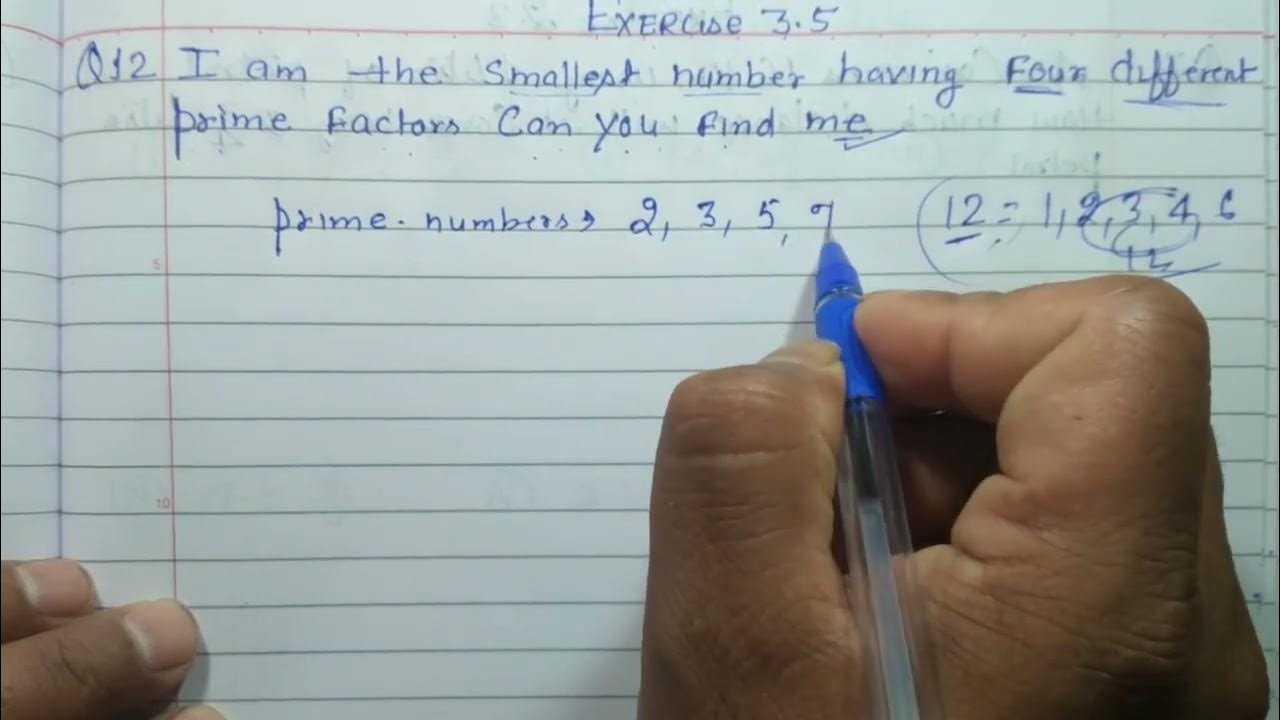 Exercise 3.5
Q12 I am the smallest number having Four different
prime Factors Can you Find me
prime numbers→ 2, 3, 5, 7
12 = 1, 2, 3, 4, 6
12
5
10